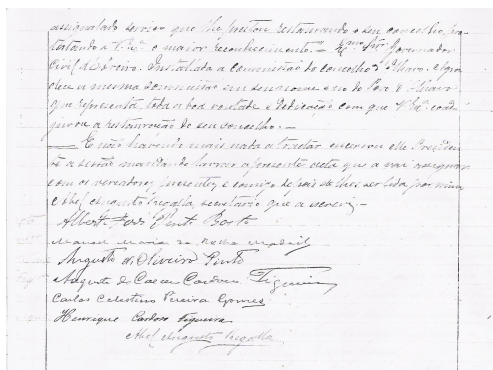 assignalado serviço que lhe prestou restaurando o seu concelho, pa-
tenteando a V. Exª o maior reconhecimento. — Exmo Snr Governador
Civil d'Aveiro. Installada a commissão do concelho d'Ilhavo,
a mesma commissão em seu nome e no do Povo d'Ilhavo
que representa, toda a boa vontade e dedicação com que V. Exª coad-
juvou a restauração do seu concelho. —
E não havendo mais nada a tractar encerrou elle Presiden-
te a sessão mandando lavrar a presente acta que a vai assignar
com os vereadores presentes e comigo depois de lhes ser lida por mim
e Abel Augusto Regalla, secretario que a screvi. —
Alberto Ferreira Pinto Basto
Manoel Maria da Rocha Madail
Augusto d'Oliveira Pinto
Augusto do Carmo Cardoso Figueira
Carlos Celestino Pereira Gomes
Henrique Cardoso Figueira
Abel Augusto Regalla